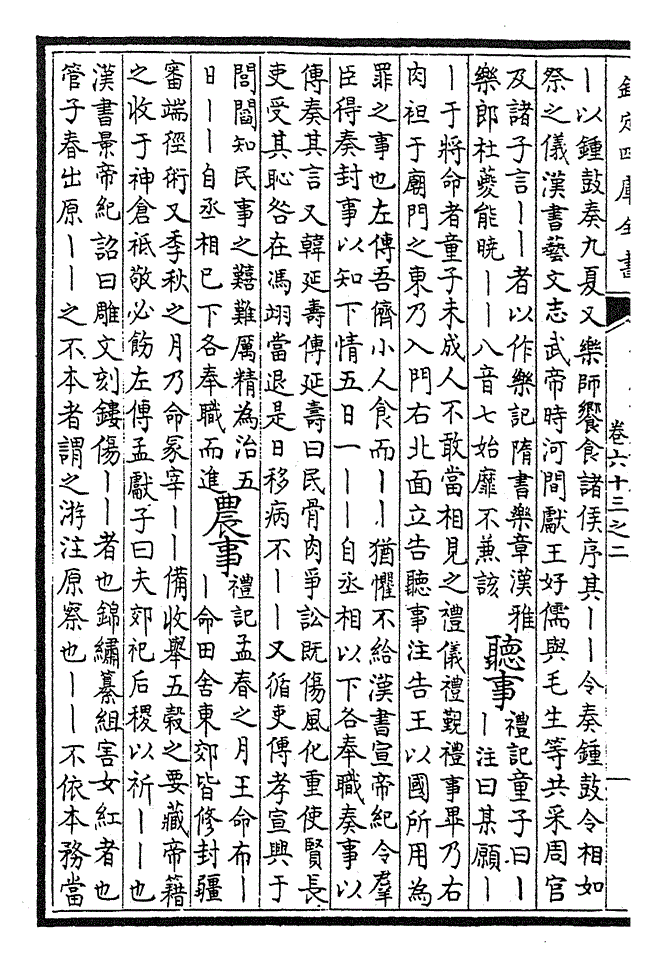 欽定四庫全書
卷六十三之二
｜以鍾鼓奏九夏又樂師饗食諸侯序其｜｜令奏鍾鼓令相如
祭之儀漢書藝文志武帝時河間獻王好儒與毛生等共采周官
及諸子言｜｜者以作樂記隋書樂章漢雅
樂郎杜夔能曉｜｜八音七始靡不兼該
聽事
禮記童子曰｜
｜注曰某願｜
｜于將命者童子未成人不敢當相見之禮儀禮覲禮事畢乃右
肉袒于廟門之東乃入門右北面立告聽事注告王以國所用為
罪之事也左傳吾儕小人食而｜｜猶懼不給漢書宣帝紀令羣
臣得奏封事以知下情五日一｜｜自丞相以下各奉職奏事以
傳奏其言又韓延壽傳延壽曰民骨肉爭訟既傷風化重使賢長
吏受其恥咎在馮翊當退是日移病不｜｜又循吏傳孝宣興于
閭閻知民事之囏難厲精為治五
日｜｜自丞相已下各奉職而進
農事
禮記孟春之月王命布｜
｜命田舍東郊皆修封疆
審端徑術又季秋之月乃命冡宰｜｜備收舉五穀之要藏帝籍
之收于神倉祗敬必飭左傳孟獻子曰夫郊祀后稷以祈｜｜也
漢書景帝紀詔曰雕文刻鏤傷｜｜者也錦繡纂組害女紅者也
管子春出原｜｜之不本者謂之游注原察也｜｜不依本務當